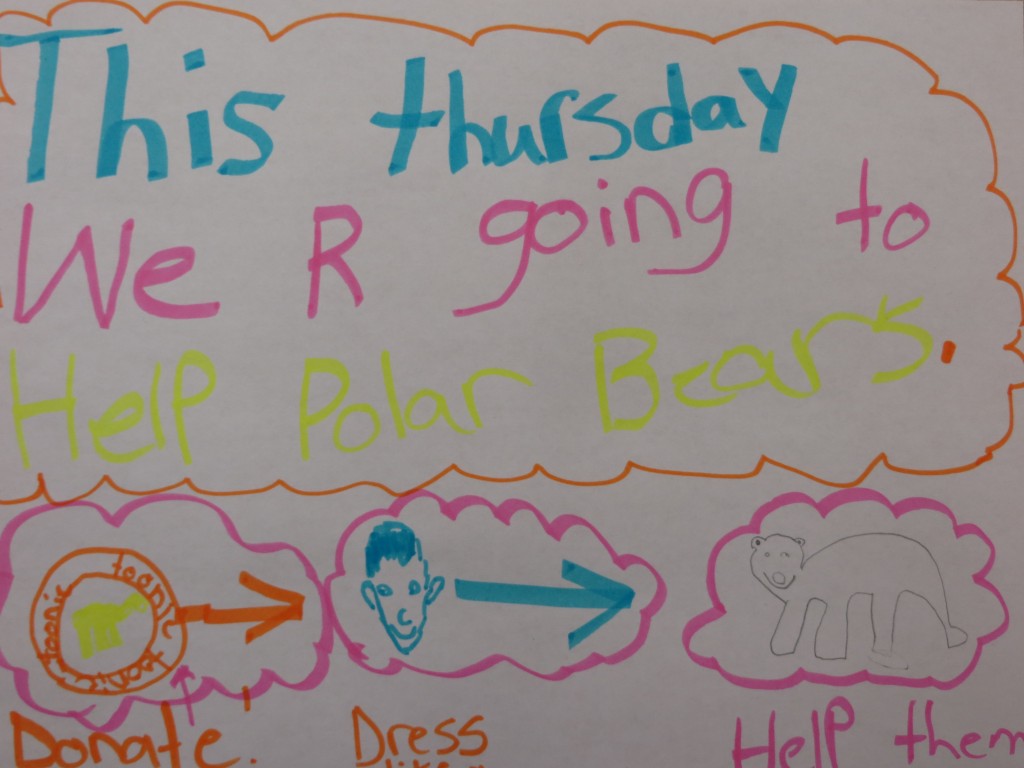 This thursday
We R going to
Help Polar Bears.
toonie toonie toonie
Donate!
Dress
Help them